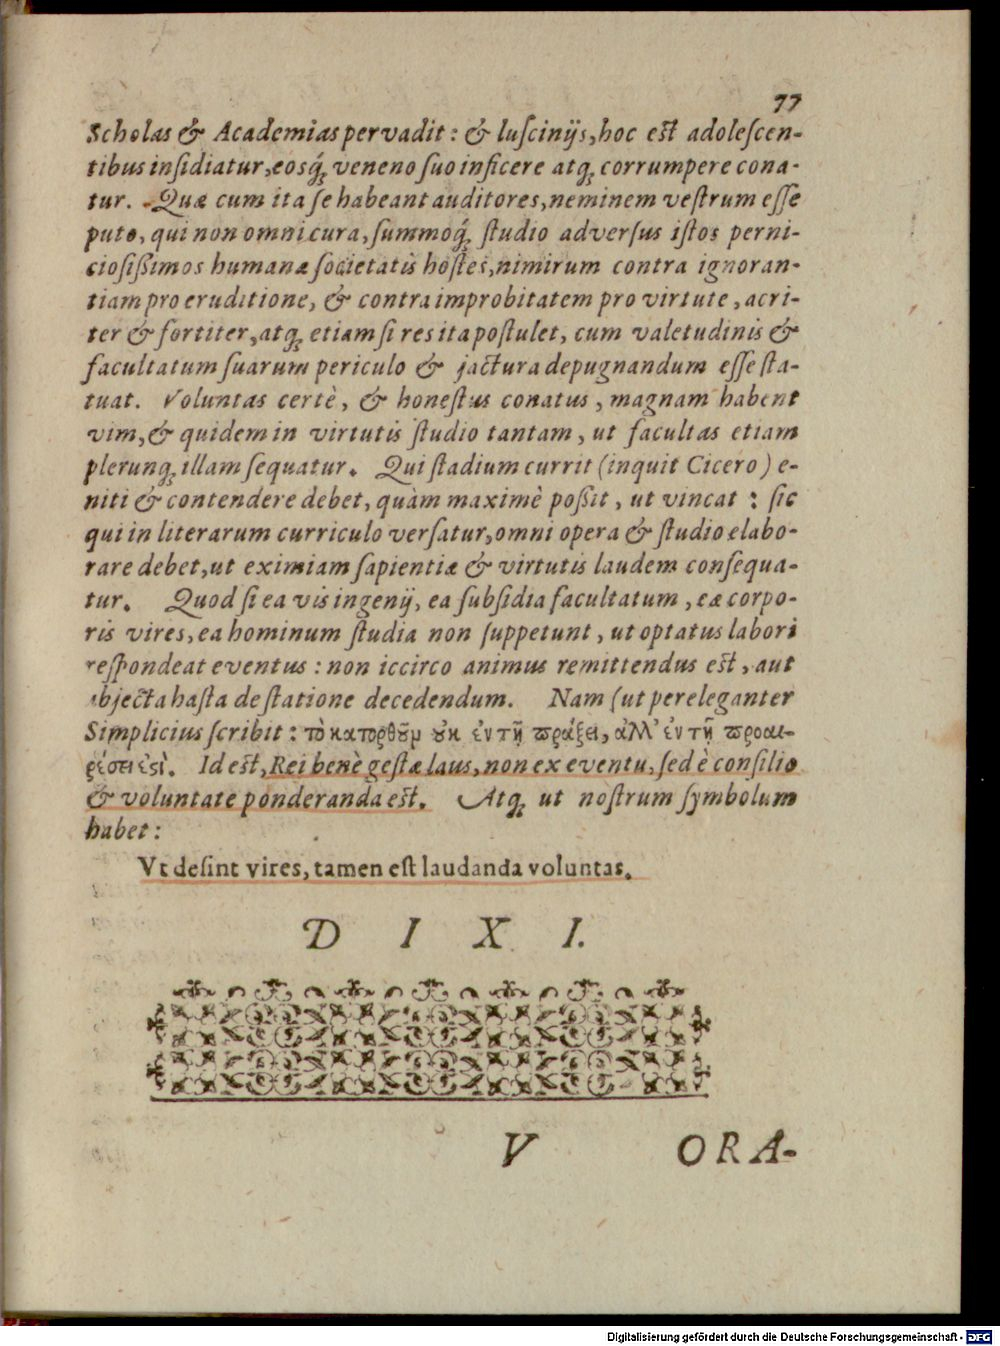 77
Scholas & Academias pervadit: & lusciniijs, hoc est adolescen-
tibus insidiatur, eosq́; veneno suo inficere atq; corrumpere cona-
tur. Quæ cum ita se habeant auditores, neminem vestrum esse
puto, qui non omni cura, summoq́; studio adversus istos perni-
ciosißimos humanæ societatis hostes, nimirum contra ignoran-
tiam pro eruditione, & contra improbitatem pro virtute, acri-
ter & fortiter, atq; etiam si res ita postulet, cum valetudinis &
facultatum suarum periculo & jactura depugnandum esse sta-
tuat. Voluntas certè, & honestus conatus, magnam habent
vim, & quidem in virtutis studio tantam, ut facultas etiam
plerunq; illam sequatur. Qui stadium currit (inquit Cicero) e-
niti & contendere debet, quàm maximè poßit, ut vincat: sic
qui in literarum curriculo versatur, omni opera & studio elabo-
rare debet, ut eximiam sapientiæ & virtutis laudem consequa-
tur. Quod si ea vis ingenij, ea subsidia facultatum, eæ corpo-
ris vires, ea hominum studia non suppetunt, ut optatus labori
respondeat eventus: non iccirco animus remittendus est, aut
abjecta hasta de statione decedendum. Nam (ut pereleganter
Simplicius scribit: τὸ κατορθοῦμ οὐκ ἐν τῇ πράξει, ἀλλ' ἐν τῇ προαι-
ρέσει ἐστὶ. Id est, Rei benè gestæ laus, non ex eventu, sed è consilio
& voluntate ponderanda est. Atq; ut nostrum symbolum
habet:
Vt desint vires, tamen est laudanda voluntas.
D I X I.
V ORA-
Digitalisierung gefördert durch die Deutsche Forschungsgemeinschaft - DFG